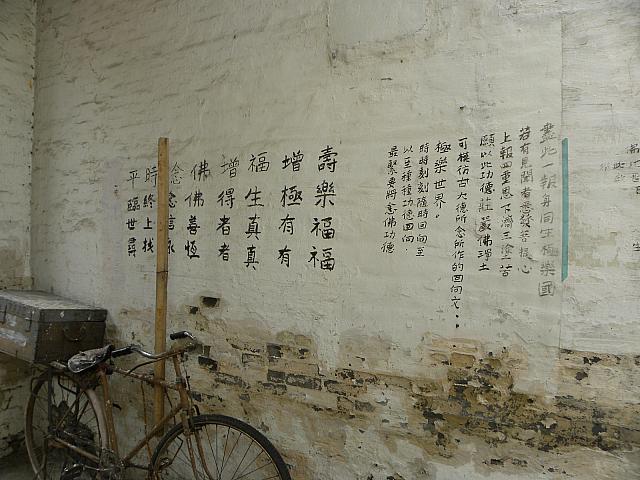 平時念佛增福增壽
臨終念佛得生極樂
世上言善者真有福
尋找永恆者真有福
最緊要將念佛功德
以至種種功德回向
時時刻刻隨時回向至
極樂世界。
可模仿古大德所念所作的回向文。
願以此功德莊嚴佛淨土
上報四重恩下濟三塗苦
若有見聞者悉發菩提心
盡此一報身同生極樂國